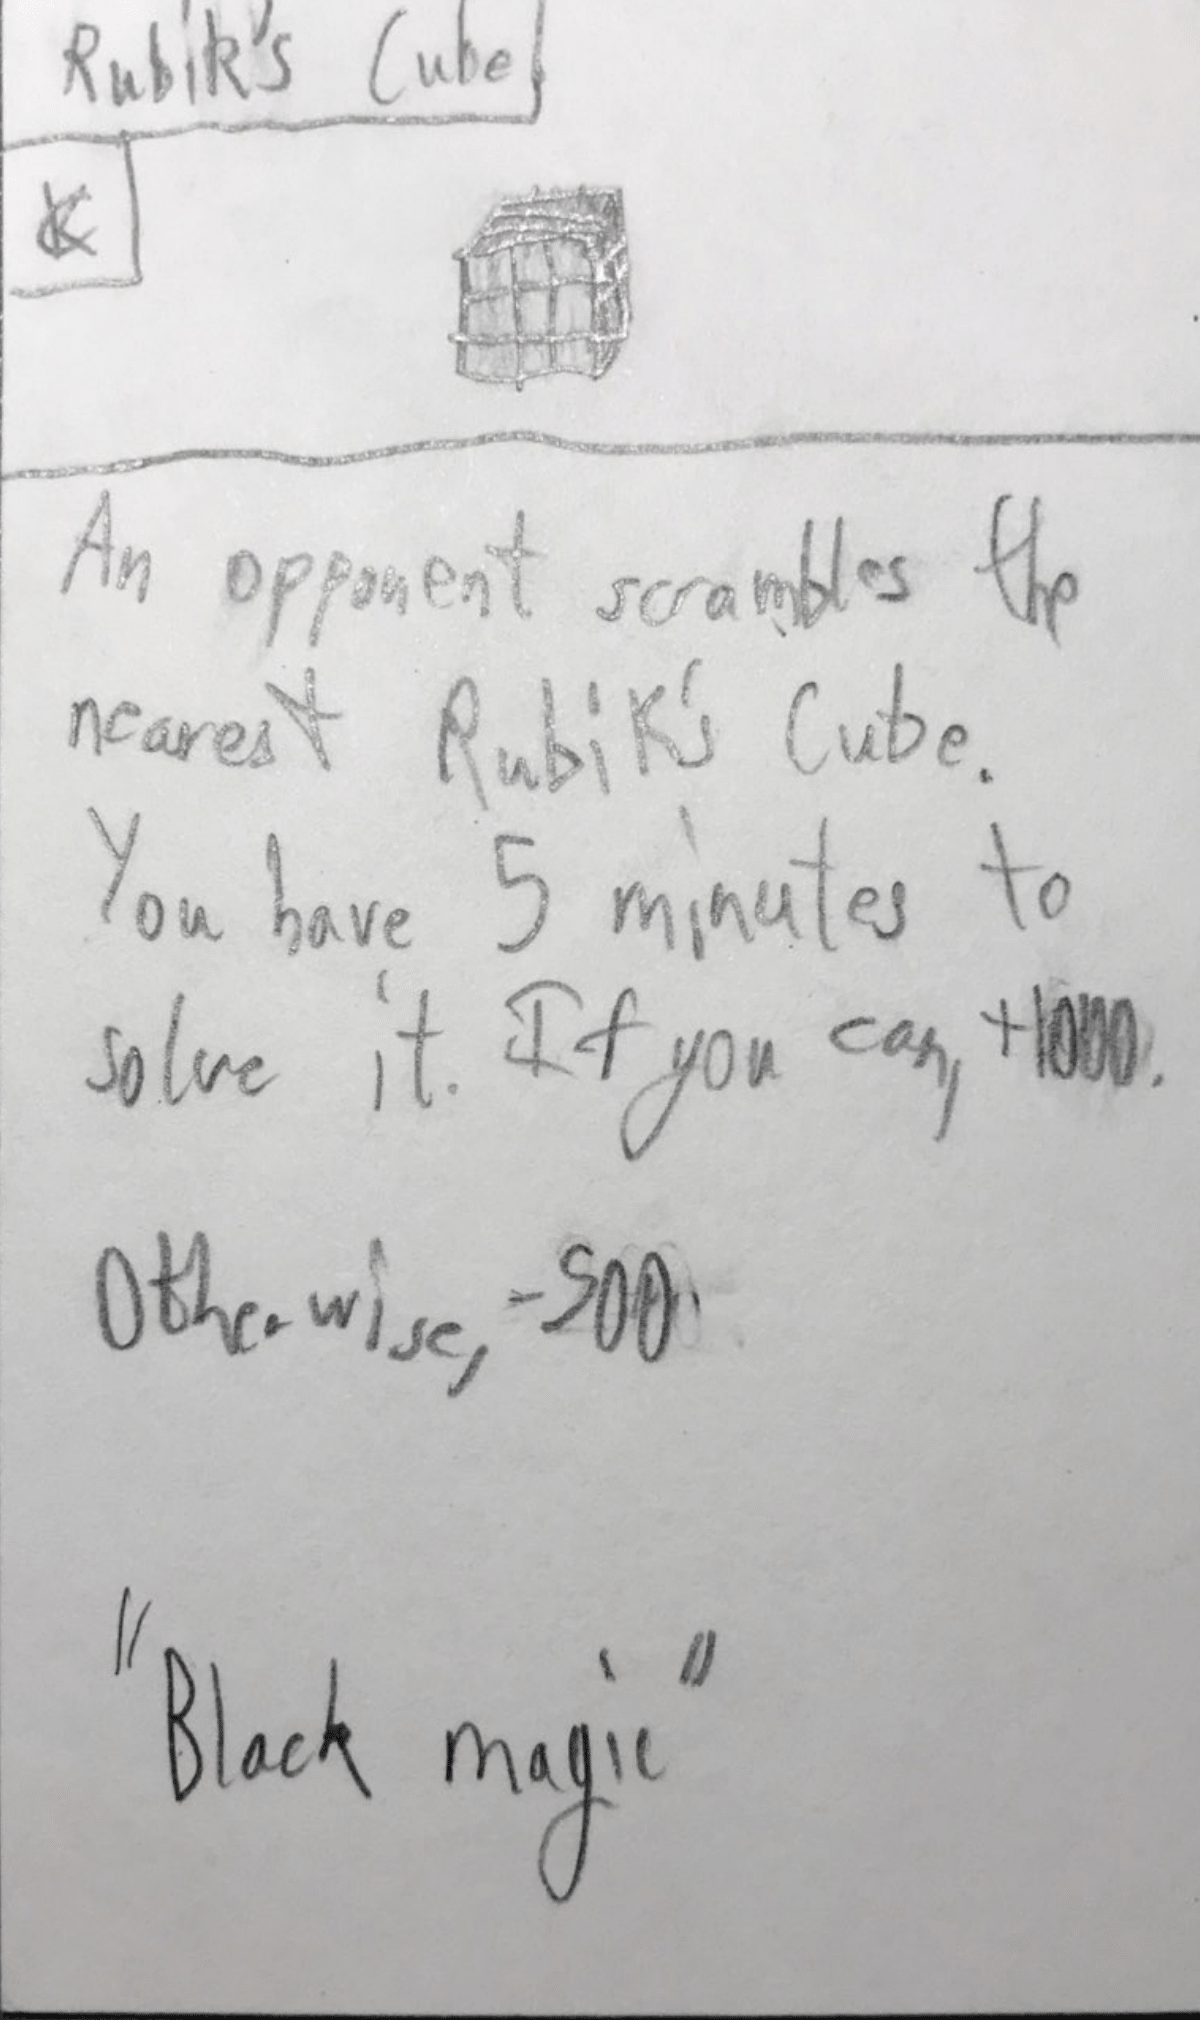 Rubik's Cube
An opponent scrambles the
nearest Rubik's Cube.
You have 5 minutes to
solve it. If you can, +1000.
Otherwise, -500.
"Black magic"